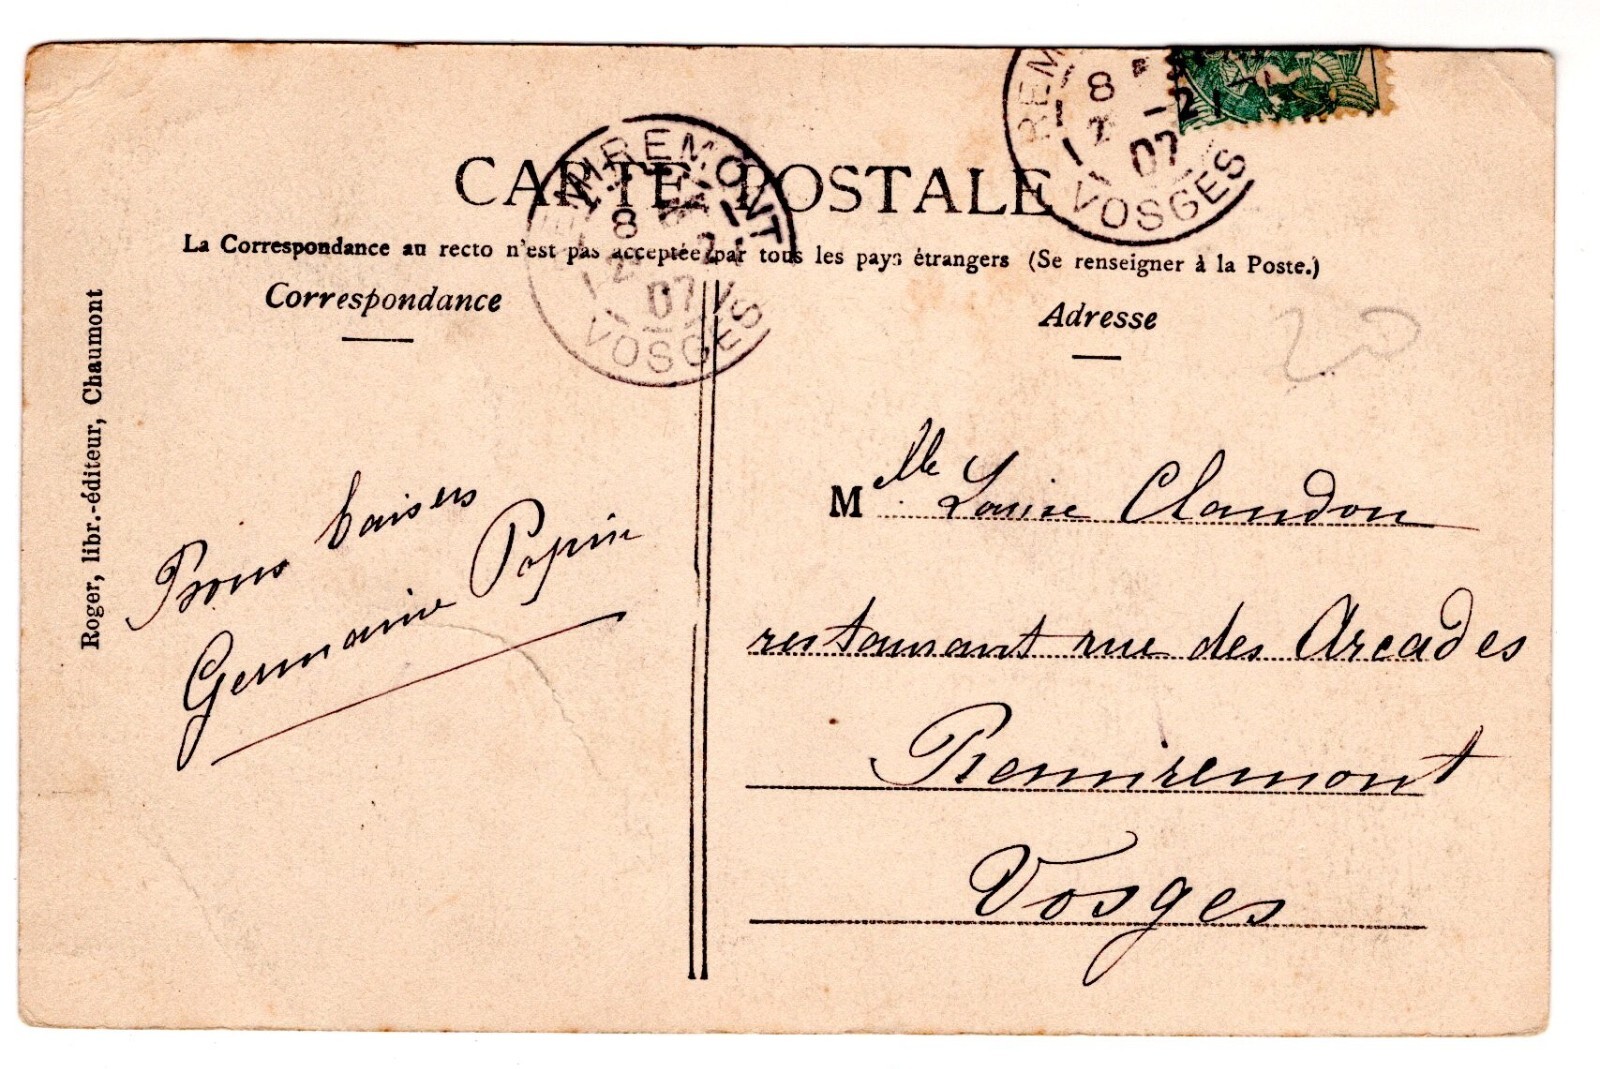 CARTE POSTALE
La Correspondance au recto n'est pas acceptée par tous les pays étrangers (Se renseigner à la Poste.)
Correspondance
Adresse
Roger, libr.-éditeur, Chaumont
REMIREMONT
8
07
VOSGES
REM
8
-2
07
VOSGES
20
Bons baisers
Germaine Papin
Melle Louise Claudon
restaurant rue des Arcades
Remiremont
Vosges